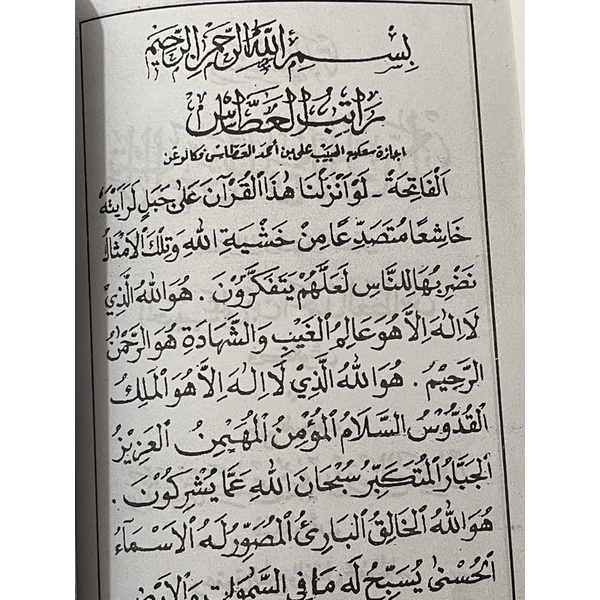 بِسْمِ اللهِ الرَّحْمٰنِ الرَّحِيْمِ
رَاتِبُ الْعَطَّاسْ
اجازة سعكم الحبيب علي بن أحمد العطاس فكالوغن
اَلْفَاتِحَةْ - لَوْ أَنْزَلْنَا هٰذَا الْقُرْآنَ عَلٰى جَبَلٍ لَرَأَيْتَهُ
خَاشِعًا مُتَصَدِّعًا مِنْ خَشْيَةِ اللهِ وَتِلْكَ الْأَمْثَالُ
نَضْرِبُهَا لِلنَّاسِ لَعَلَّهُمْ يَتَفَكَّرُوْنَ . هُوَ اللهُ الَّذِيْ
لَا اِلٰهَ اِلَّا هُوَ عَالِمُ الْغَيْبِ وَالشَّهَادَةِ هُوَ الرَّحْمٰنُ
الرَّحِيْمُ . هُوَ اللهُ الَّذِيْ لَا اِلٰهَ اِلَّا هُوَ الْمَلِكُ
الْقُدُّوْسُ السَّلَامُ الْمُؤْمِنُ الْمُهَيْمِنُ الْعَزِيْزُ
الْجَبَّارُ الْمُتَكَبِّرُ سُبْحَانَ اللهِ عَمَّا يُشْرِكُوْنَ .
هُوَ اللهُ الْخَالِقُ الْبَارِئُ الْمُصَوِّرُ لَهُ الْاَسْمَاءُ
الْحُسْنٰى يُسَبِّحُ لَهُ مَا فِي السَّمٰوَاتِ وَالْاَرْضِ